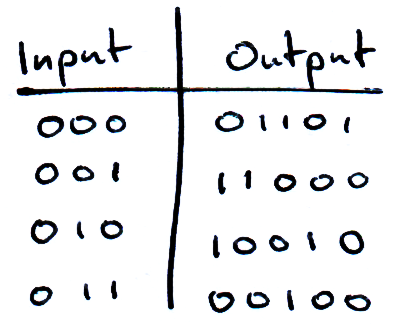 Input Output
000 01101
001 11000
010 10010
011 00100